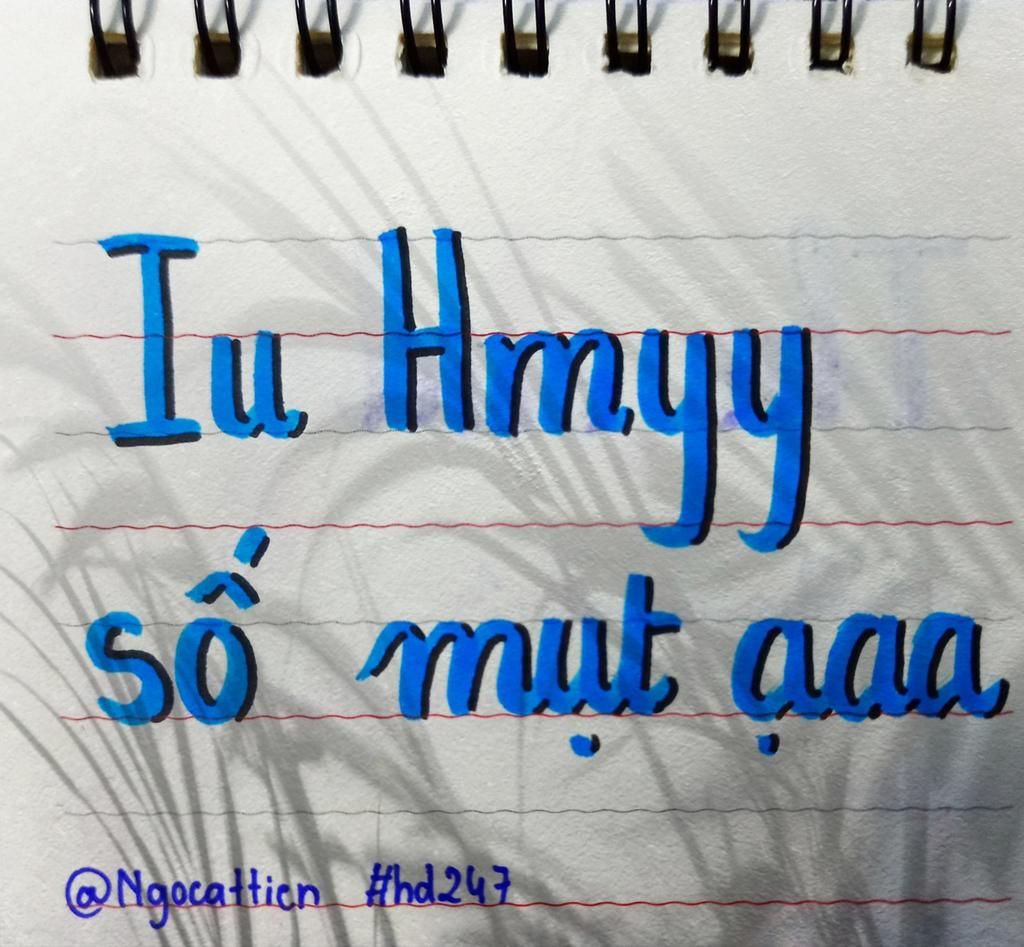 Iu Hmyy
số mụt ạaa
@Ngocattien #hd247